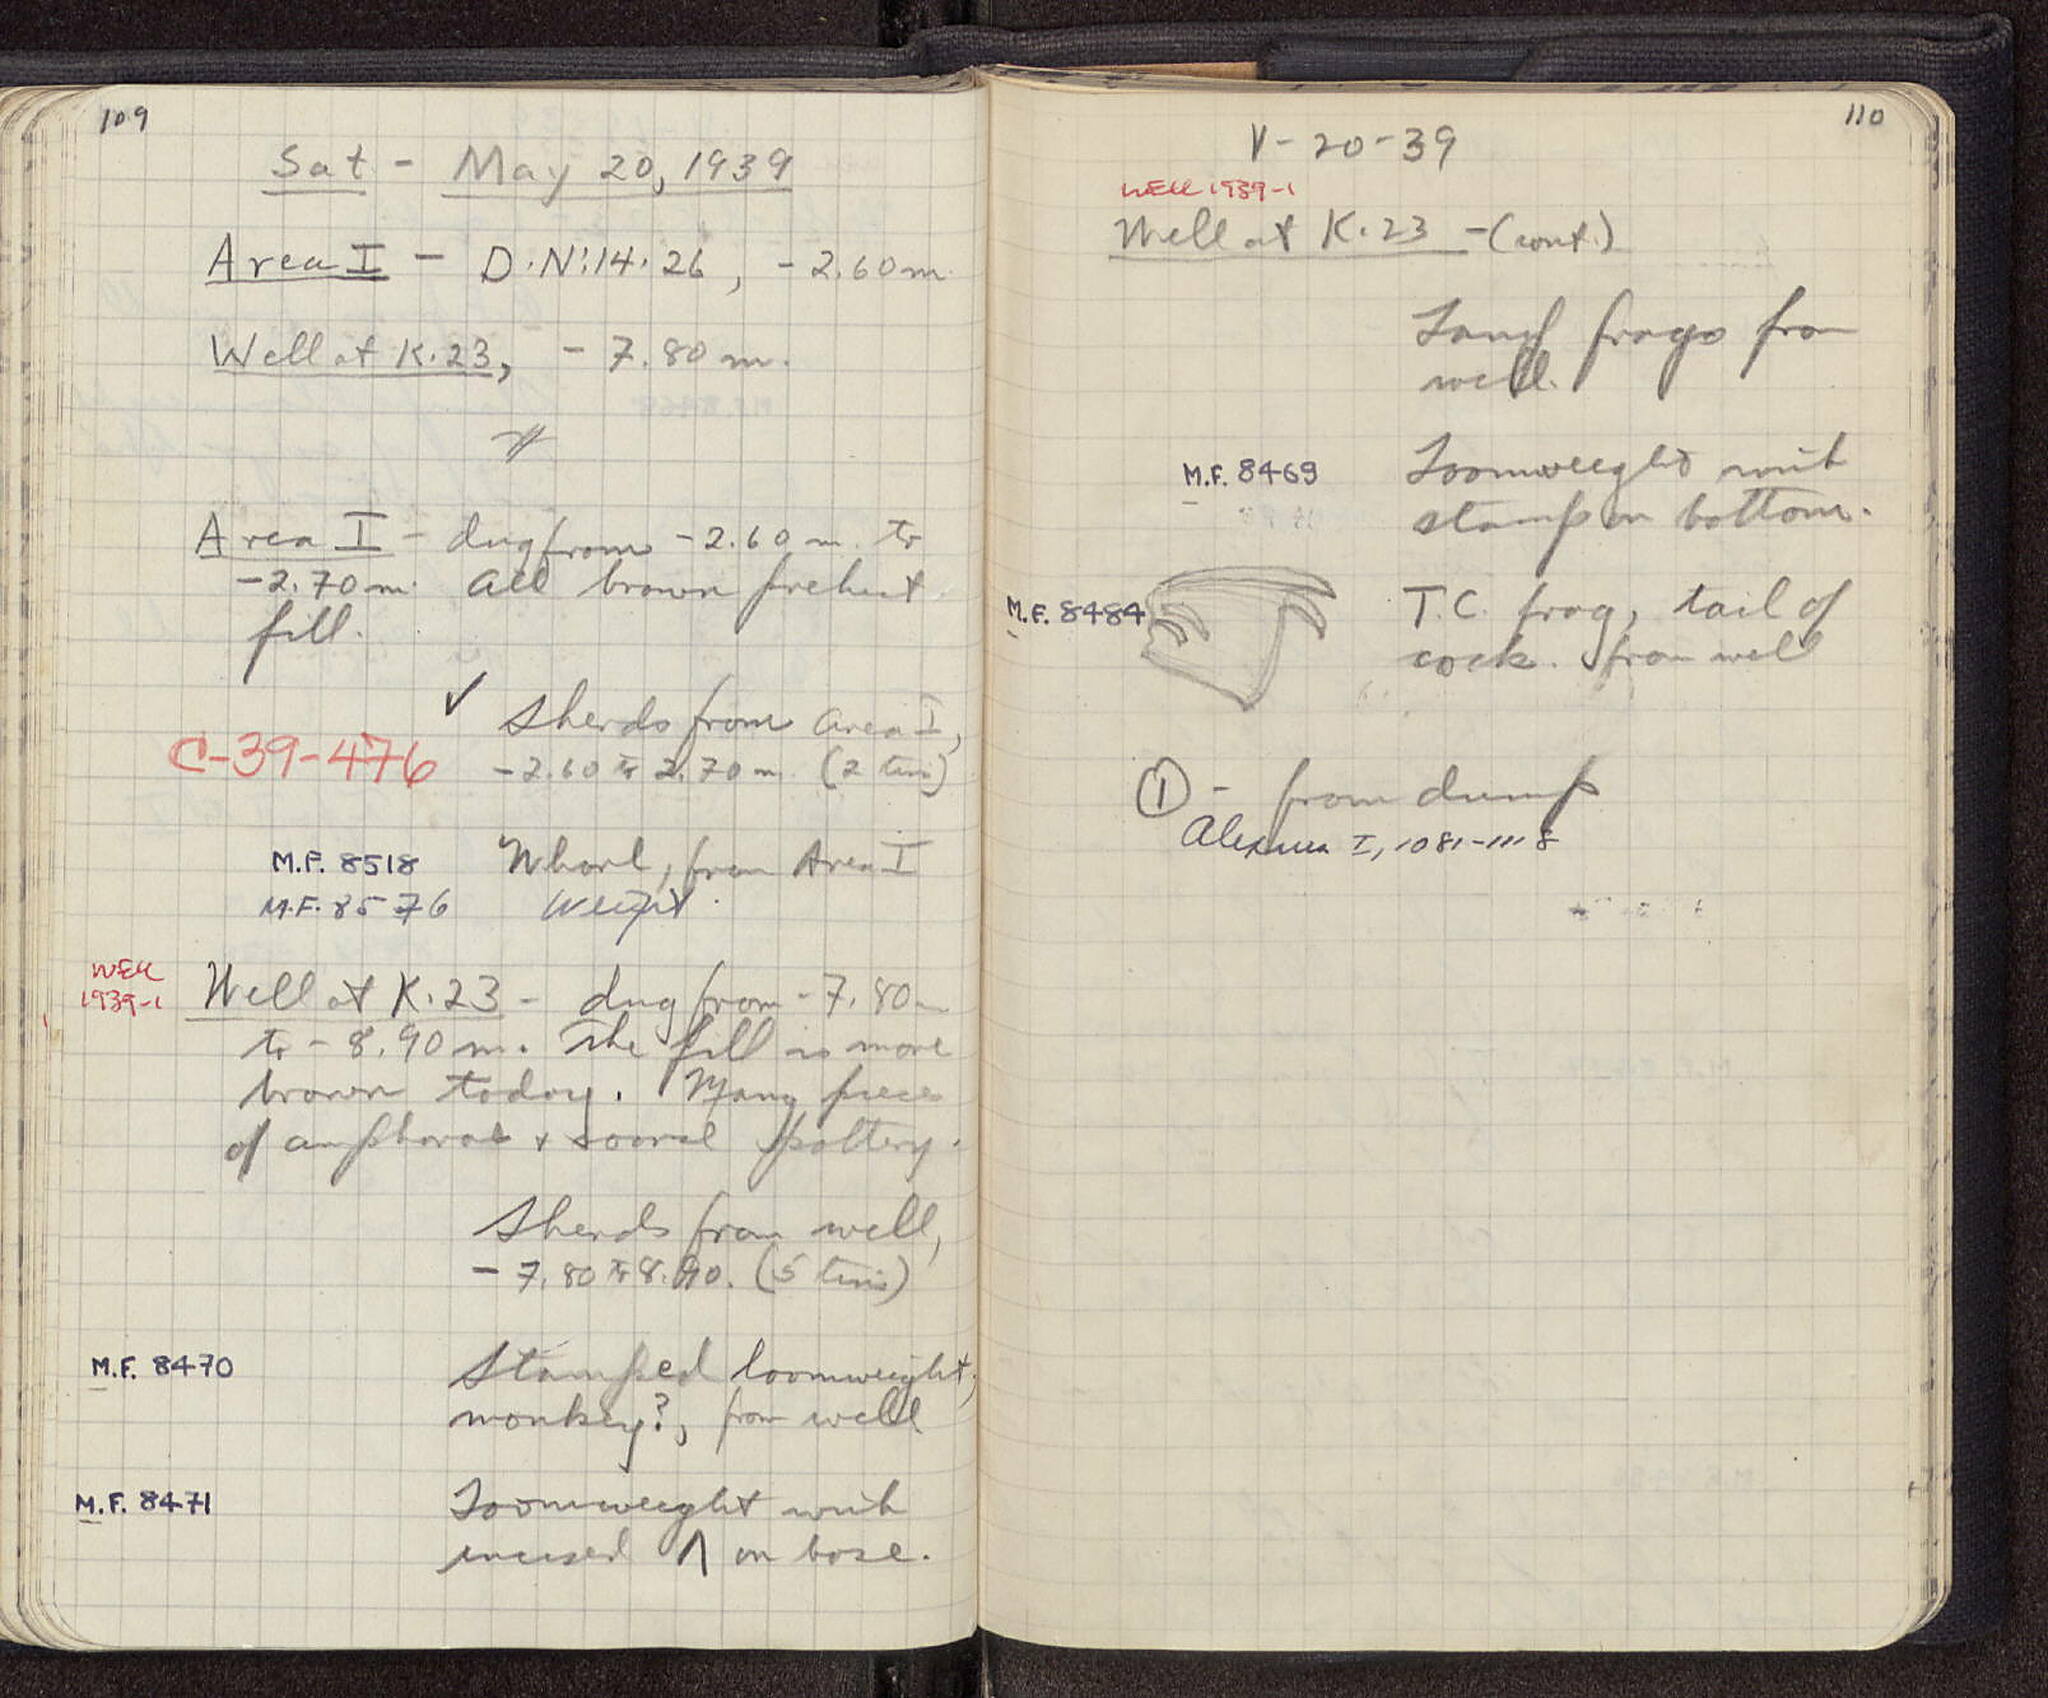 109
Sat - May 20, 1939
Area I - D·N:14·26, - 2.60 m.
Well at K·23, - 7.80 m.
Area I - dug from - 2.60 m. to
- 2.70 m. All brown prehist.
fill.
✓ Sherds from Area I,
C-39-476
- 2.60 to 2.70 m. (2 tins)
M.F. 8518 Whorl, from Area I
M.F. 8576 Weight.
WELL
1939-1
Well at K·23 - dug from - 7.80 m
to - 8.90 m. The fill is more
brown today. Many pieces
of amphorae + coarse pottery.
Sherds from well,
- 7.80 to 8.90. (5 tins)
M.F. 8470 Stamped loomweight,
monkey?, from well
M.F. 8471 Loomweight with
incised Λ on base.
110
V - 20 - 39
WELL 1939-1
Well at K·23 - (cont.)
Lamp frags from
well.
M.F. 8469 Loomweight with
stamp on bottom.
M.F. 8484 T.C. frag, tail of
cock. from well
① - from dump
Alexius I, 1081-1118